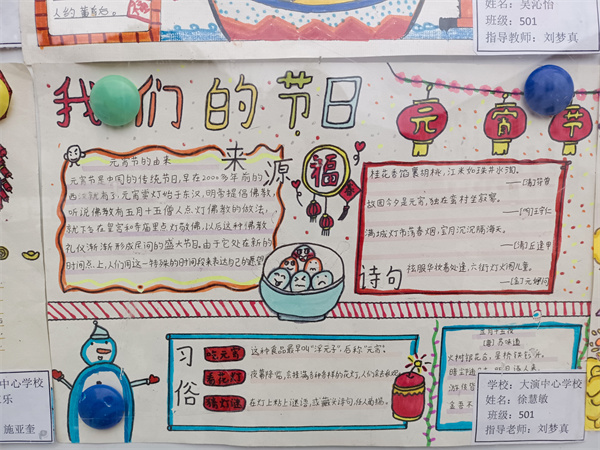 人约黄昏后。
姓名：吴沁怡
班级：501
指导教师：刘梦真
我们的节日
元宵节
来源
元宵节的由来
元宵节是中国的传统节日,早在2000多年前的
西汉就有了,元宵赏灯始于东汉,明帝提倡佛教,
听说佛教有五月十五僧人点灯佛教的做法,
就下令在皇宫和寺庙里点灯敬佛,以后这种佛教
礼仪渐渐形成民间的盛大节日。由于它处在新的
时间点上,人们用这一特殊的时间段来表达自己的愿望
福
桂花香馅裹胡桃,江米如珠井水淘。
故园今夕是元宵,独在蛮村坐寂寥。
——[明]王守仁
满城灯市荡春烟,宝月沉沉隔海天。
——[清]丘逢甲
诗句
袨服华妆着处逢,六街灯火闹儿童。
——[金]元好问
习俗
吃元宵
这种食品最早叫"浮元子"后称"元宵"。
看花灯
猜灯谜
五月十五夜
[唐]苏味道
火树银花合,星桥铁锁开。
学校：大演中心学校
姓名：徐慧敏
班级：501
指导老师：刘梦真
中心学校
乐
施亚奎